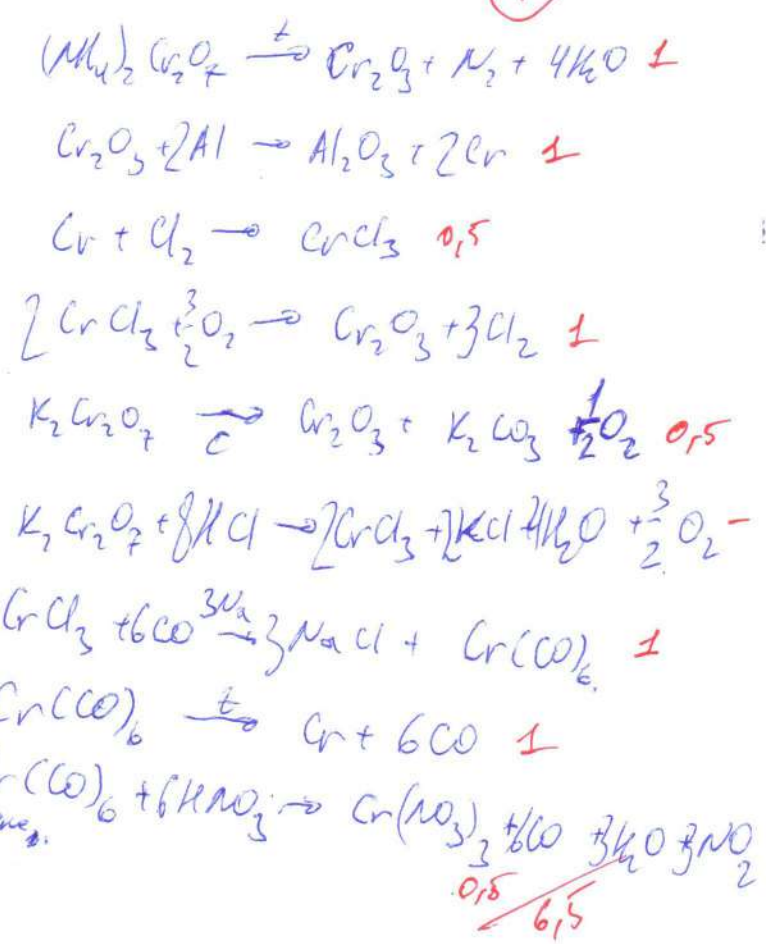 (NH₄)₂Cr₂O₇ →ᵗ Cr₂O₃ + N₂ + 4H₂O 1
Cr₂O₃ + 2Al → Al₂O₃ + 2Cr 1
Cr + Cl₂ → CrCl₃ 0,5
2CrCl₃ + 3/2 O₂ → Cr₂O₃ + 3Cl₂ 1
K₂Cr₂O₇ → C Cr₂O₃ + K₂CO₃ + 1/2 O₂ 0,5
K₂Cr₂O₇ + 8HCl → 2CrCl₃ + 2KCl + 4H₂O + 3/2 O₂ -
CrCl₃ + 6CO 3Na → 3NaCl + Cr(CO)₆. 1
Cr(CO)₆ →ᵗ Cr + 6CO 1
r(CO)₆ + 6HNO₃ → Cr(NO₃)₃ + 6CO + 3H₂O + 3NO₂
0,5
6,5